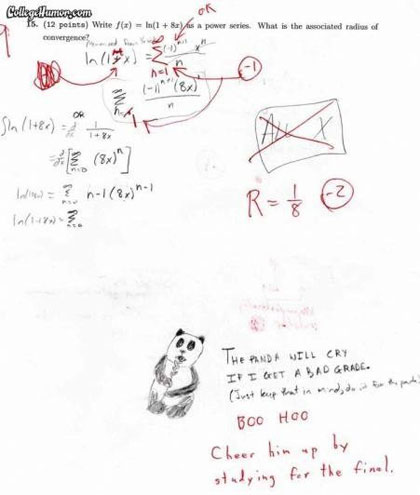 CollegeHumor.com
9
OK
15. (12 points) Write f(x) = ln(1 + 8x) as a power series. What is the associated radius of
convergence?
ln(1+x) = Σ n=1 (-1)^(n+1) x^n / n
-1
Σ n=1 (-1)^(n+1) (8x)^n / n
OR
ln(1+8x) = 1/(1+8x)
= [Σ n=0 (8x)^n]
Σ n-1 (8x)^(n-1)
ln(1+8x) = Σ n=0
All X
R = 1/8 -2
THE PANDA WILL CRY
IF I GET A BAD GRADE.
(Just keep that in mind, do it for the panda)
BOO HOO
Cheer him up by
studying for the final.